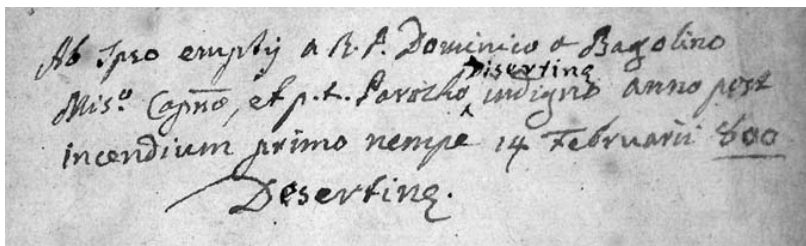 Ab Ipso emptỹ a R. P. Dominico a Bagolino
Disertinę
Mis.º Cap̅no, et p. t. Parocho indigno anno post
incendium primo nempe 14 Februarii 800
Desertinę.